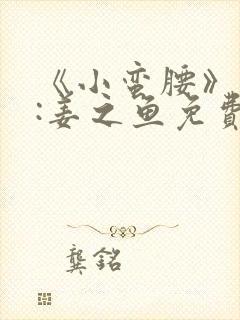 《小蛮腰》
:姜之鱼免費
龔銘